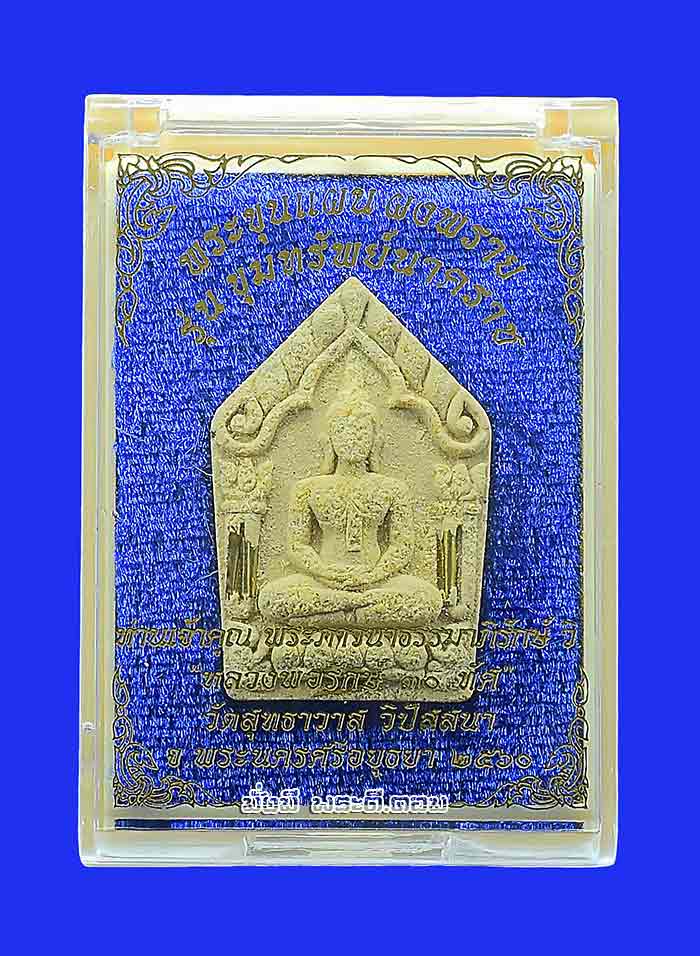 พระขุนแผน ผงพราย
รุ่น ขุมทรัพย์นาคราช
ท่านเจ้าคุณ พระภาวนาธรรมาภิรักษ์ วิ
"หลวงพ่อรักษ์ ๓๐ ทัศ"
วัดสุทธาวาส วิปัสสนา
จ พระนครศรีอยุธยา ๒๕๖๐
พระดี.คอม